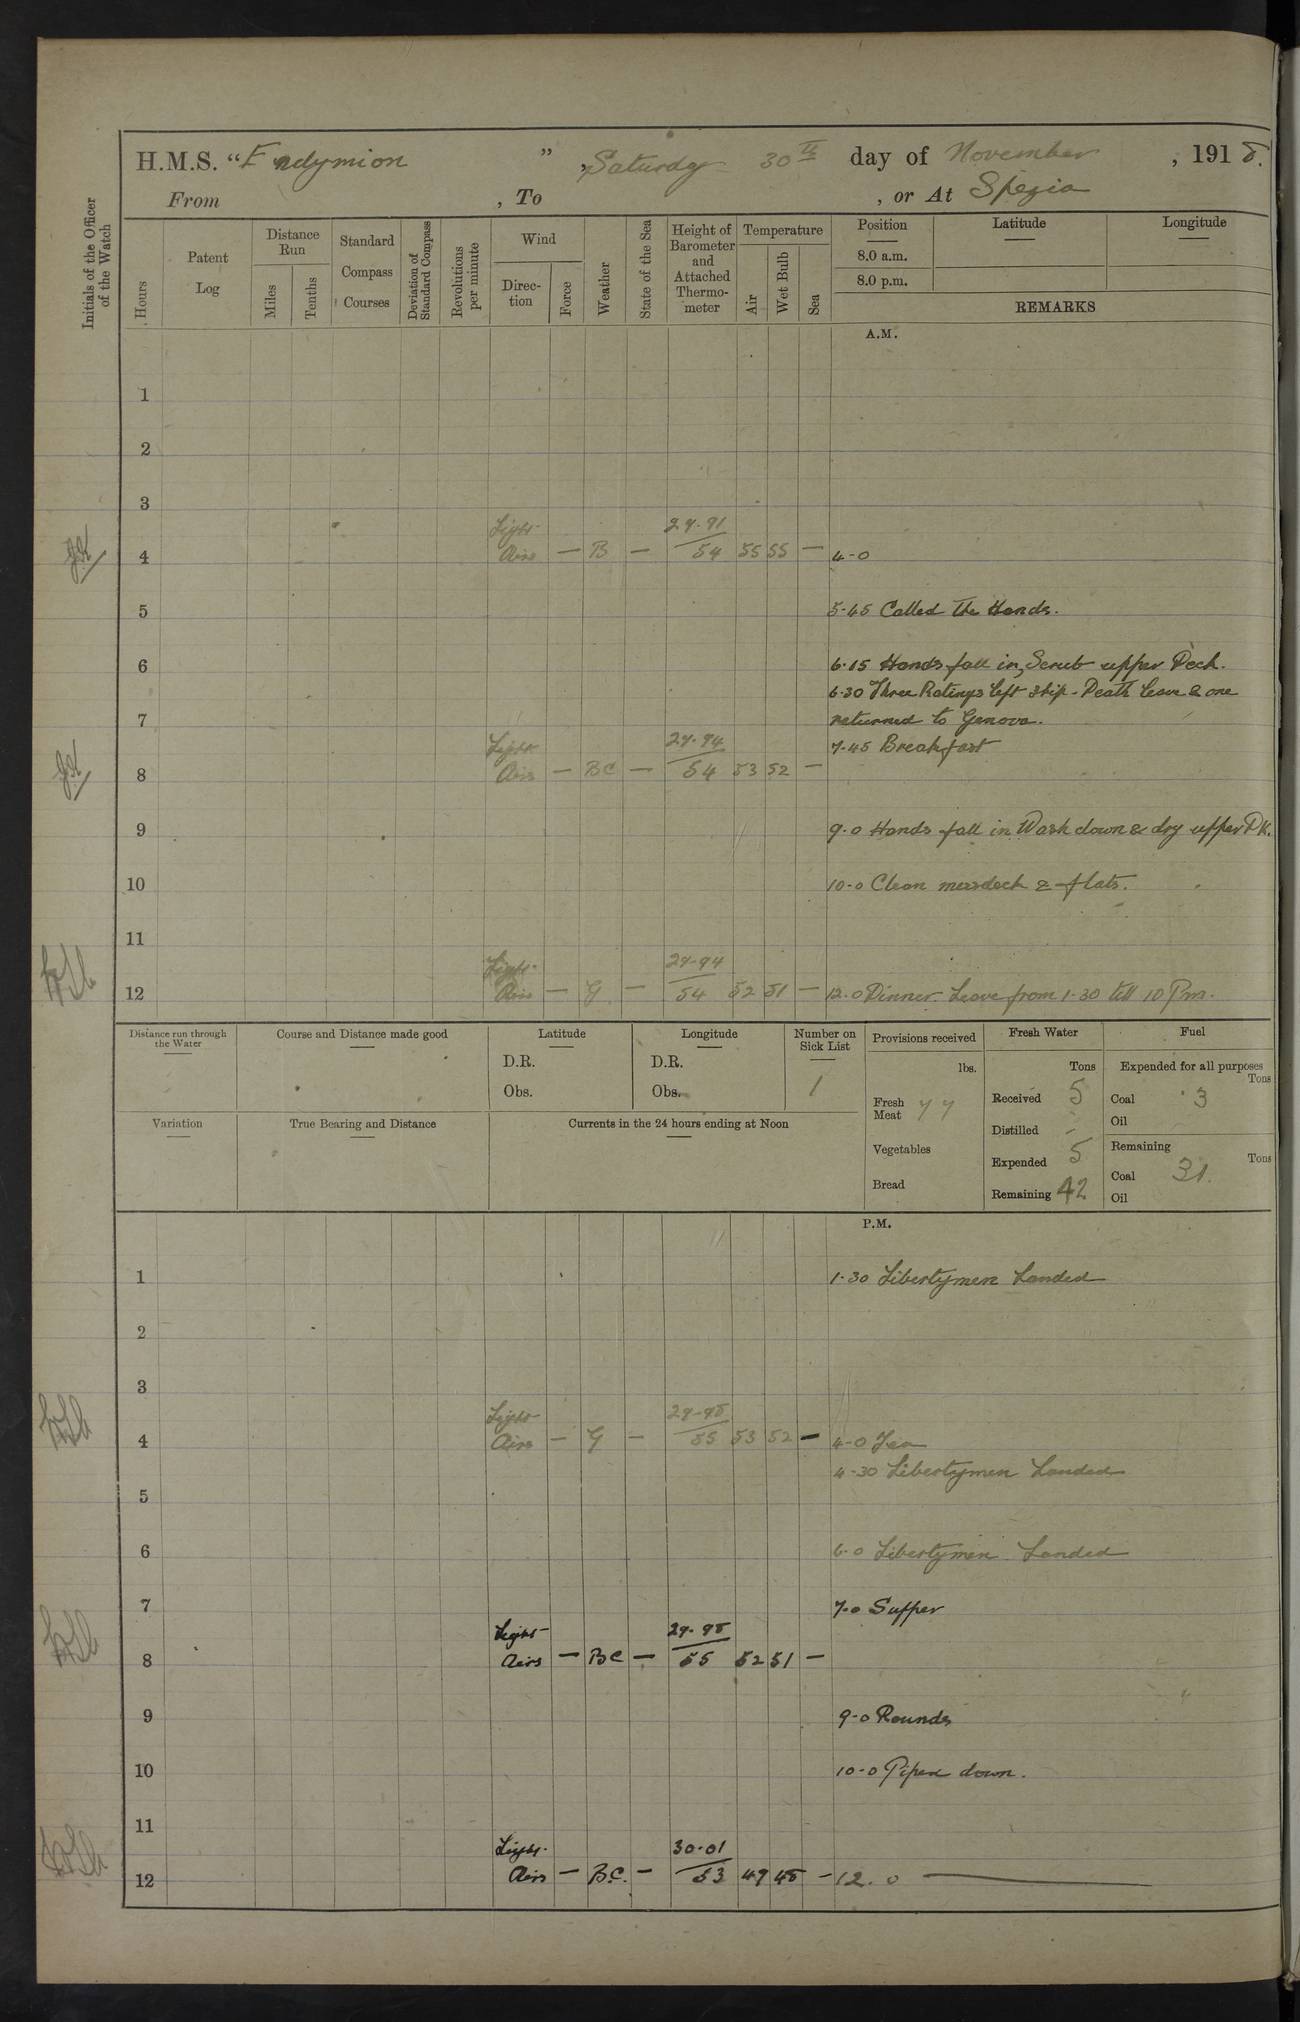 H.M.S. “Endymion ” , Saturday 30th day of November , 1918.
From , To , or At Spezia
Initials of the Officer of the Watch
Hours
Patent Log
Distance Run
Miles
Tenths
Standard Compass Courses
Deviation of Standard Compass
Revolutions per minute
Wind
Direction
Force
Weather
State of the Sea
Height of Barometer and Attached Thermometer
Temperature
Air
Wet Bulb
Sea
Position
8.0 a.m.
8.0 p.m.
Latitude
Longitude
REMARKS
A.M.
1
2
3
Light 29.91
4 Airs — B — 54 55 55 — 4-0
5 5-45 Called the Hands.
6 6.15 Hands fall in, Scrub upper Deck.
6.30 Three Ratings left ship - Death leave & one
7 returned to Genova.
Light 29.94 7-45 Breakfast
8 Airs — BC — 54 53 52 —
9 9.0 Hands fall in Wash down & dry upper Dk.
10 10-0 Clean messdeck & flats.
11
Light 29-94
12 Airs — G — 54 52 51 — 12.0 Dinner. Leave from 1-30 till 10 Pm.
Distance run through the Water
Course and Distance made good
Latitude
D.R.
Obs.
Longitude
D.R.
Obs.
Number on Sick List
1
Variation
True Bearing and Distance
Currents in the 24 hours ending at Noon
Provisions received
lbs.
Fresh Meat 77
Vegetables
Bread
Fresh Water
Tons
Received 5
Distilled -
Expended 5
Remaining 42
Fuel
Expended for all purposes
Tons
Coal 3
Oil
Remaining
Tons
Coal 31.
Oil
P.M.
1 1-30 Libertymen Landed
2
3
Light 29-98
4 Airs — G — 55 53 52 — 4-0 Tea
4-30 Libertymen Landed
5
6 6.0 Libertymen Landed
7 7.0 Supper
Light 29.98
8 Airs — BC — 55 52 51 —
9 9-0 Rounds
10 10-0 Piped down.
11
Light 30.01
12 Airs — B.C. — 53 49 48 — 12.0